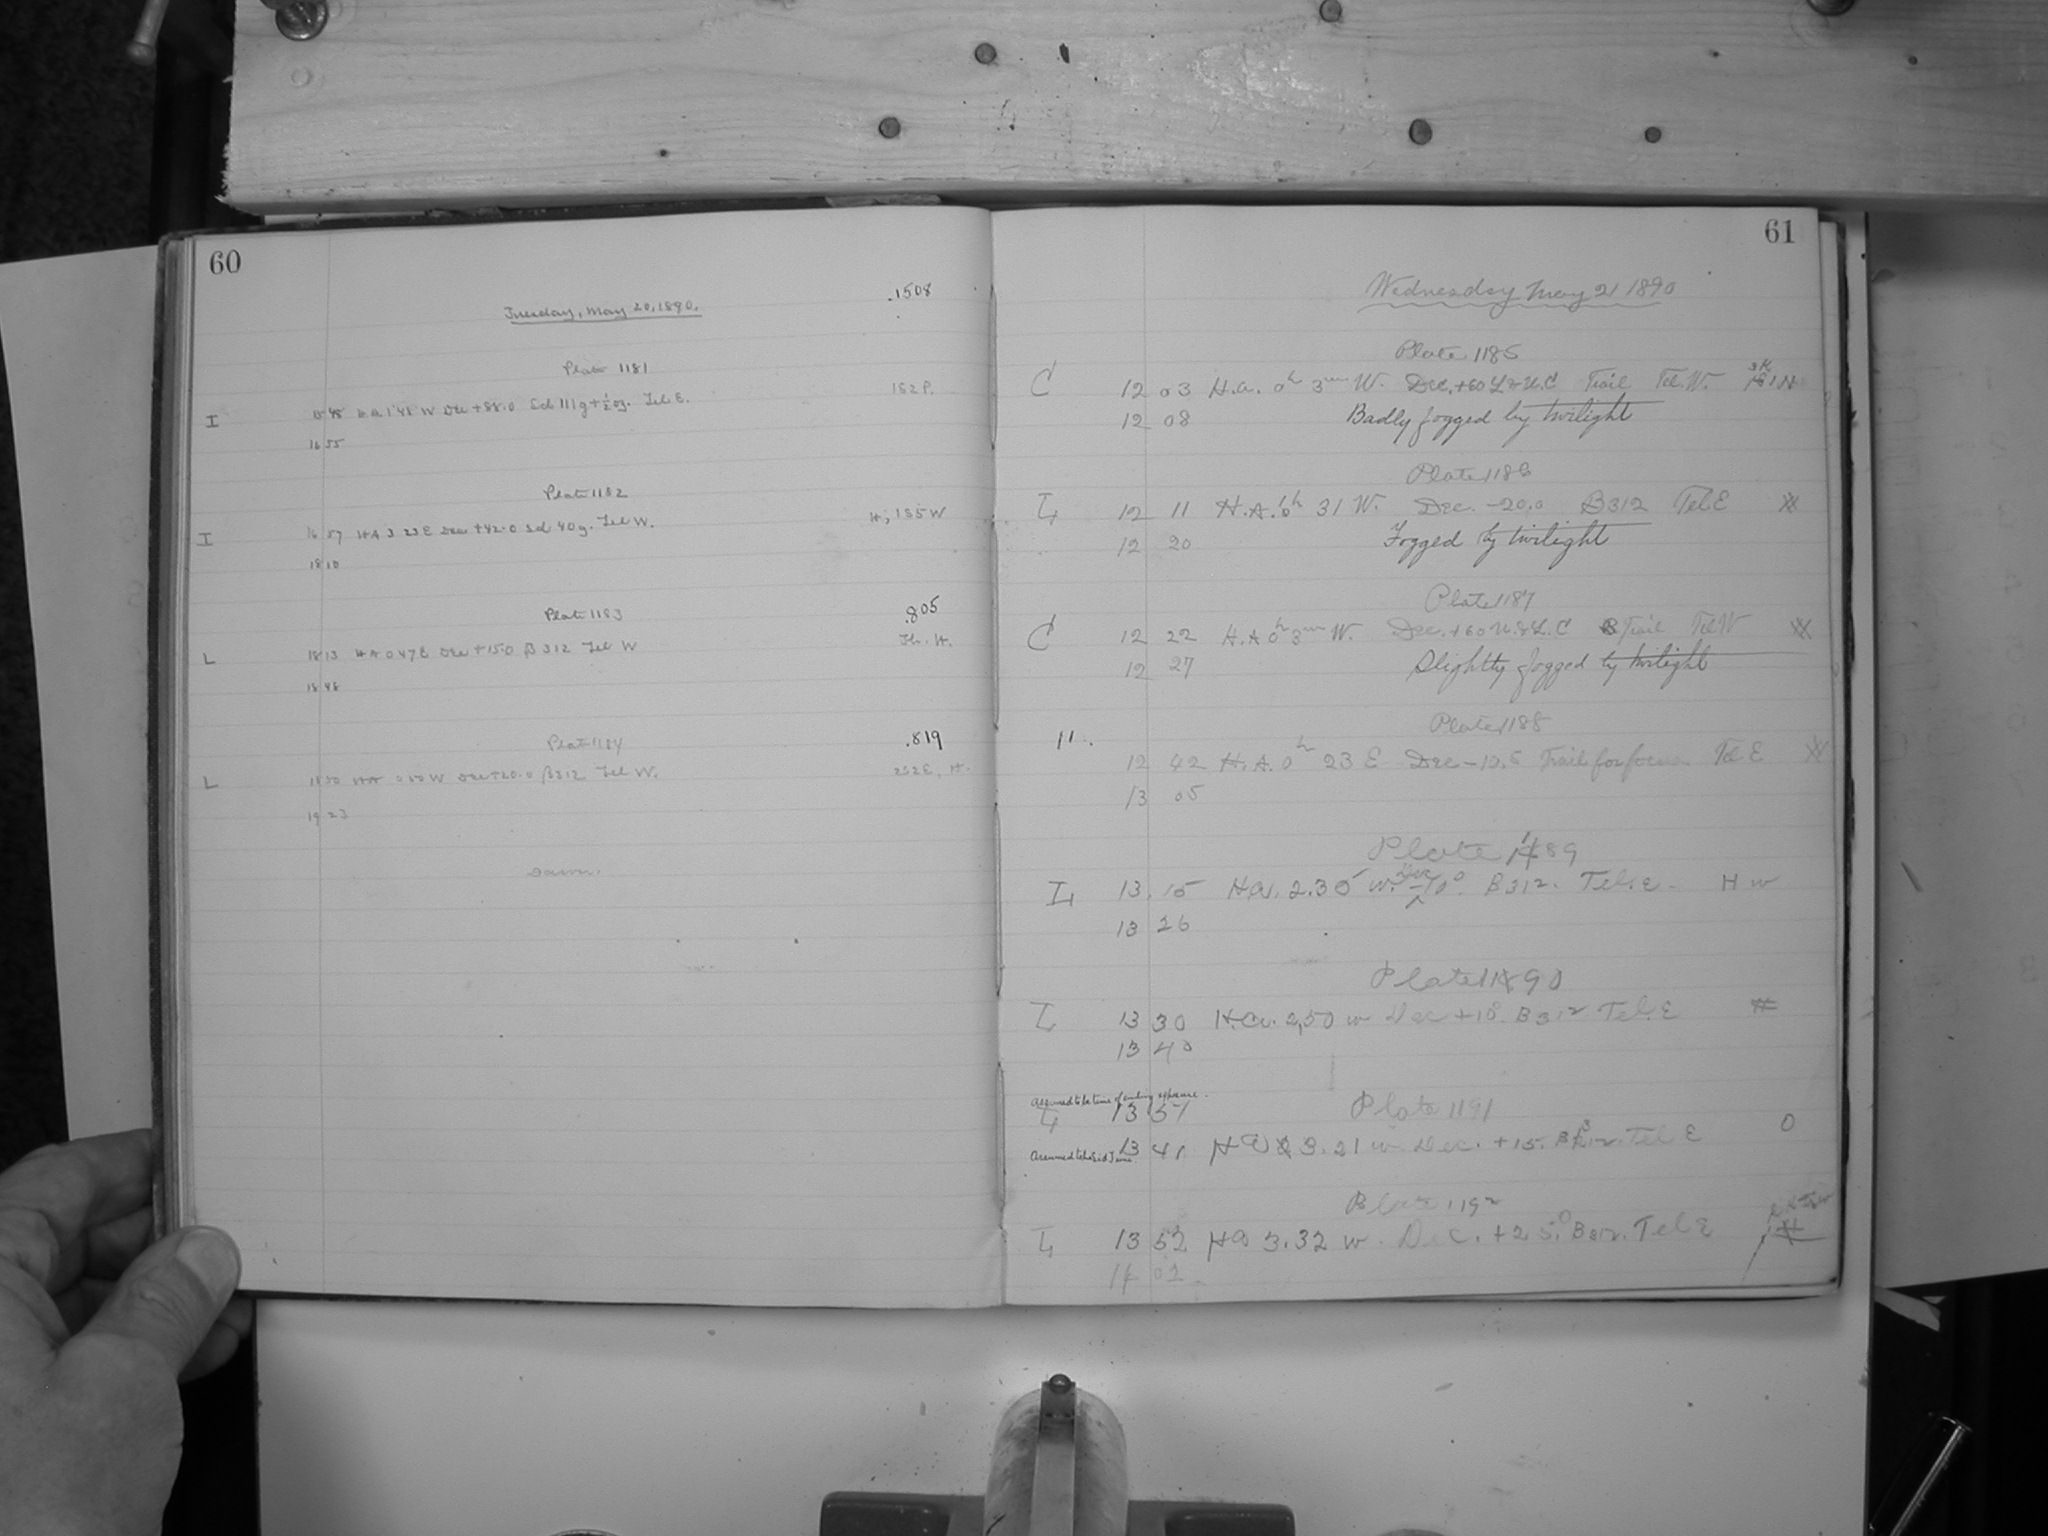 60
Tuesday, May 20, 1890.
.1508
Plate 1181
I H.A. 1 48 W Dec +88.0 Tel E.
16 55
Plate 1182
I 16 57 H A 3 23 E Dec +42.0 Sd 40g. Tel W. H, 185 W
18 10
Plate 1183 .805
L 18 13 H A 0 47 E Dec +15.0 β 312 Tel W
18 48
Plate 1184 .819
L 18 50 HA W Dec +20.0 β312 Tel W. 252E, H.
19 23
Dawn.
61
Wednesday May 21 1890
Plate 1185
C 12 03 H.A. 0h 3m W. Dec. +60 L & U.C Trail Tel. W.
12 08 Badly fogged by twilight
Plate 1186
L 12 11 H.A. 0h 31 W. Dec. -20.0 B312 Tel E
12 20 Fogged by twilight
Plate 1187
C 12 22 H.A 0h 3m W. Dec. +60 U. & L. C Trail Tel W
12 27 Slightly fogged by twilight
Plate 1188
11. 12 42 H.A. 0h 23 E Dec -10.5 Trail for focus Tel E
13 05
Plate 1189
L 13. 15 H.a. 2.35 w. Dec -10°. B 312. Tel. E. H w
13 26
Plate 1190
L 13 30 H.a. 2,50 w Dec +10°. B 312 Tel. E
13 40
Assumed to be time of ending exposure.
L 13 51 Plate 1191
13 41 H a 3. 21 w. Dec. +15. B312. Tel E 0
Assumed to be Sid Time.
Plate 1192
L 13 52 Ha 3.32 w. Dec. +25.° B312. Tel E
14 02